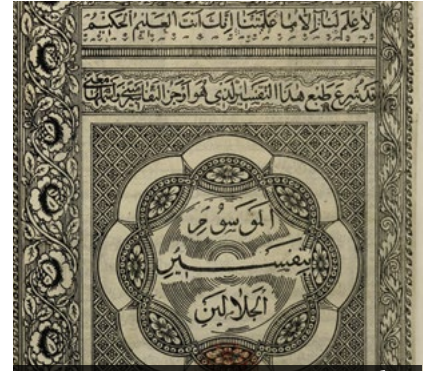 لا علم لنا الا ما علمتنا انك انت العليم الحكيم
قد شرع طبع هذا التفسير الذي هو اوجز التفاسير
الموسوم
بتفسير
الجلالين